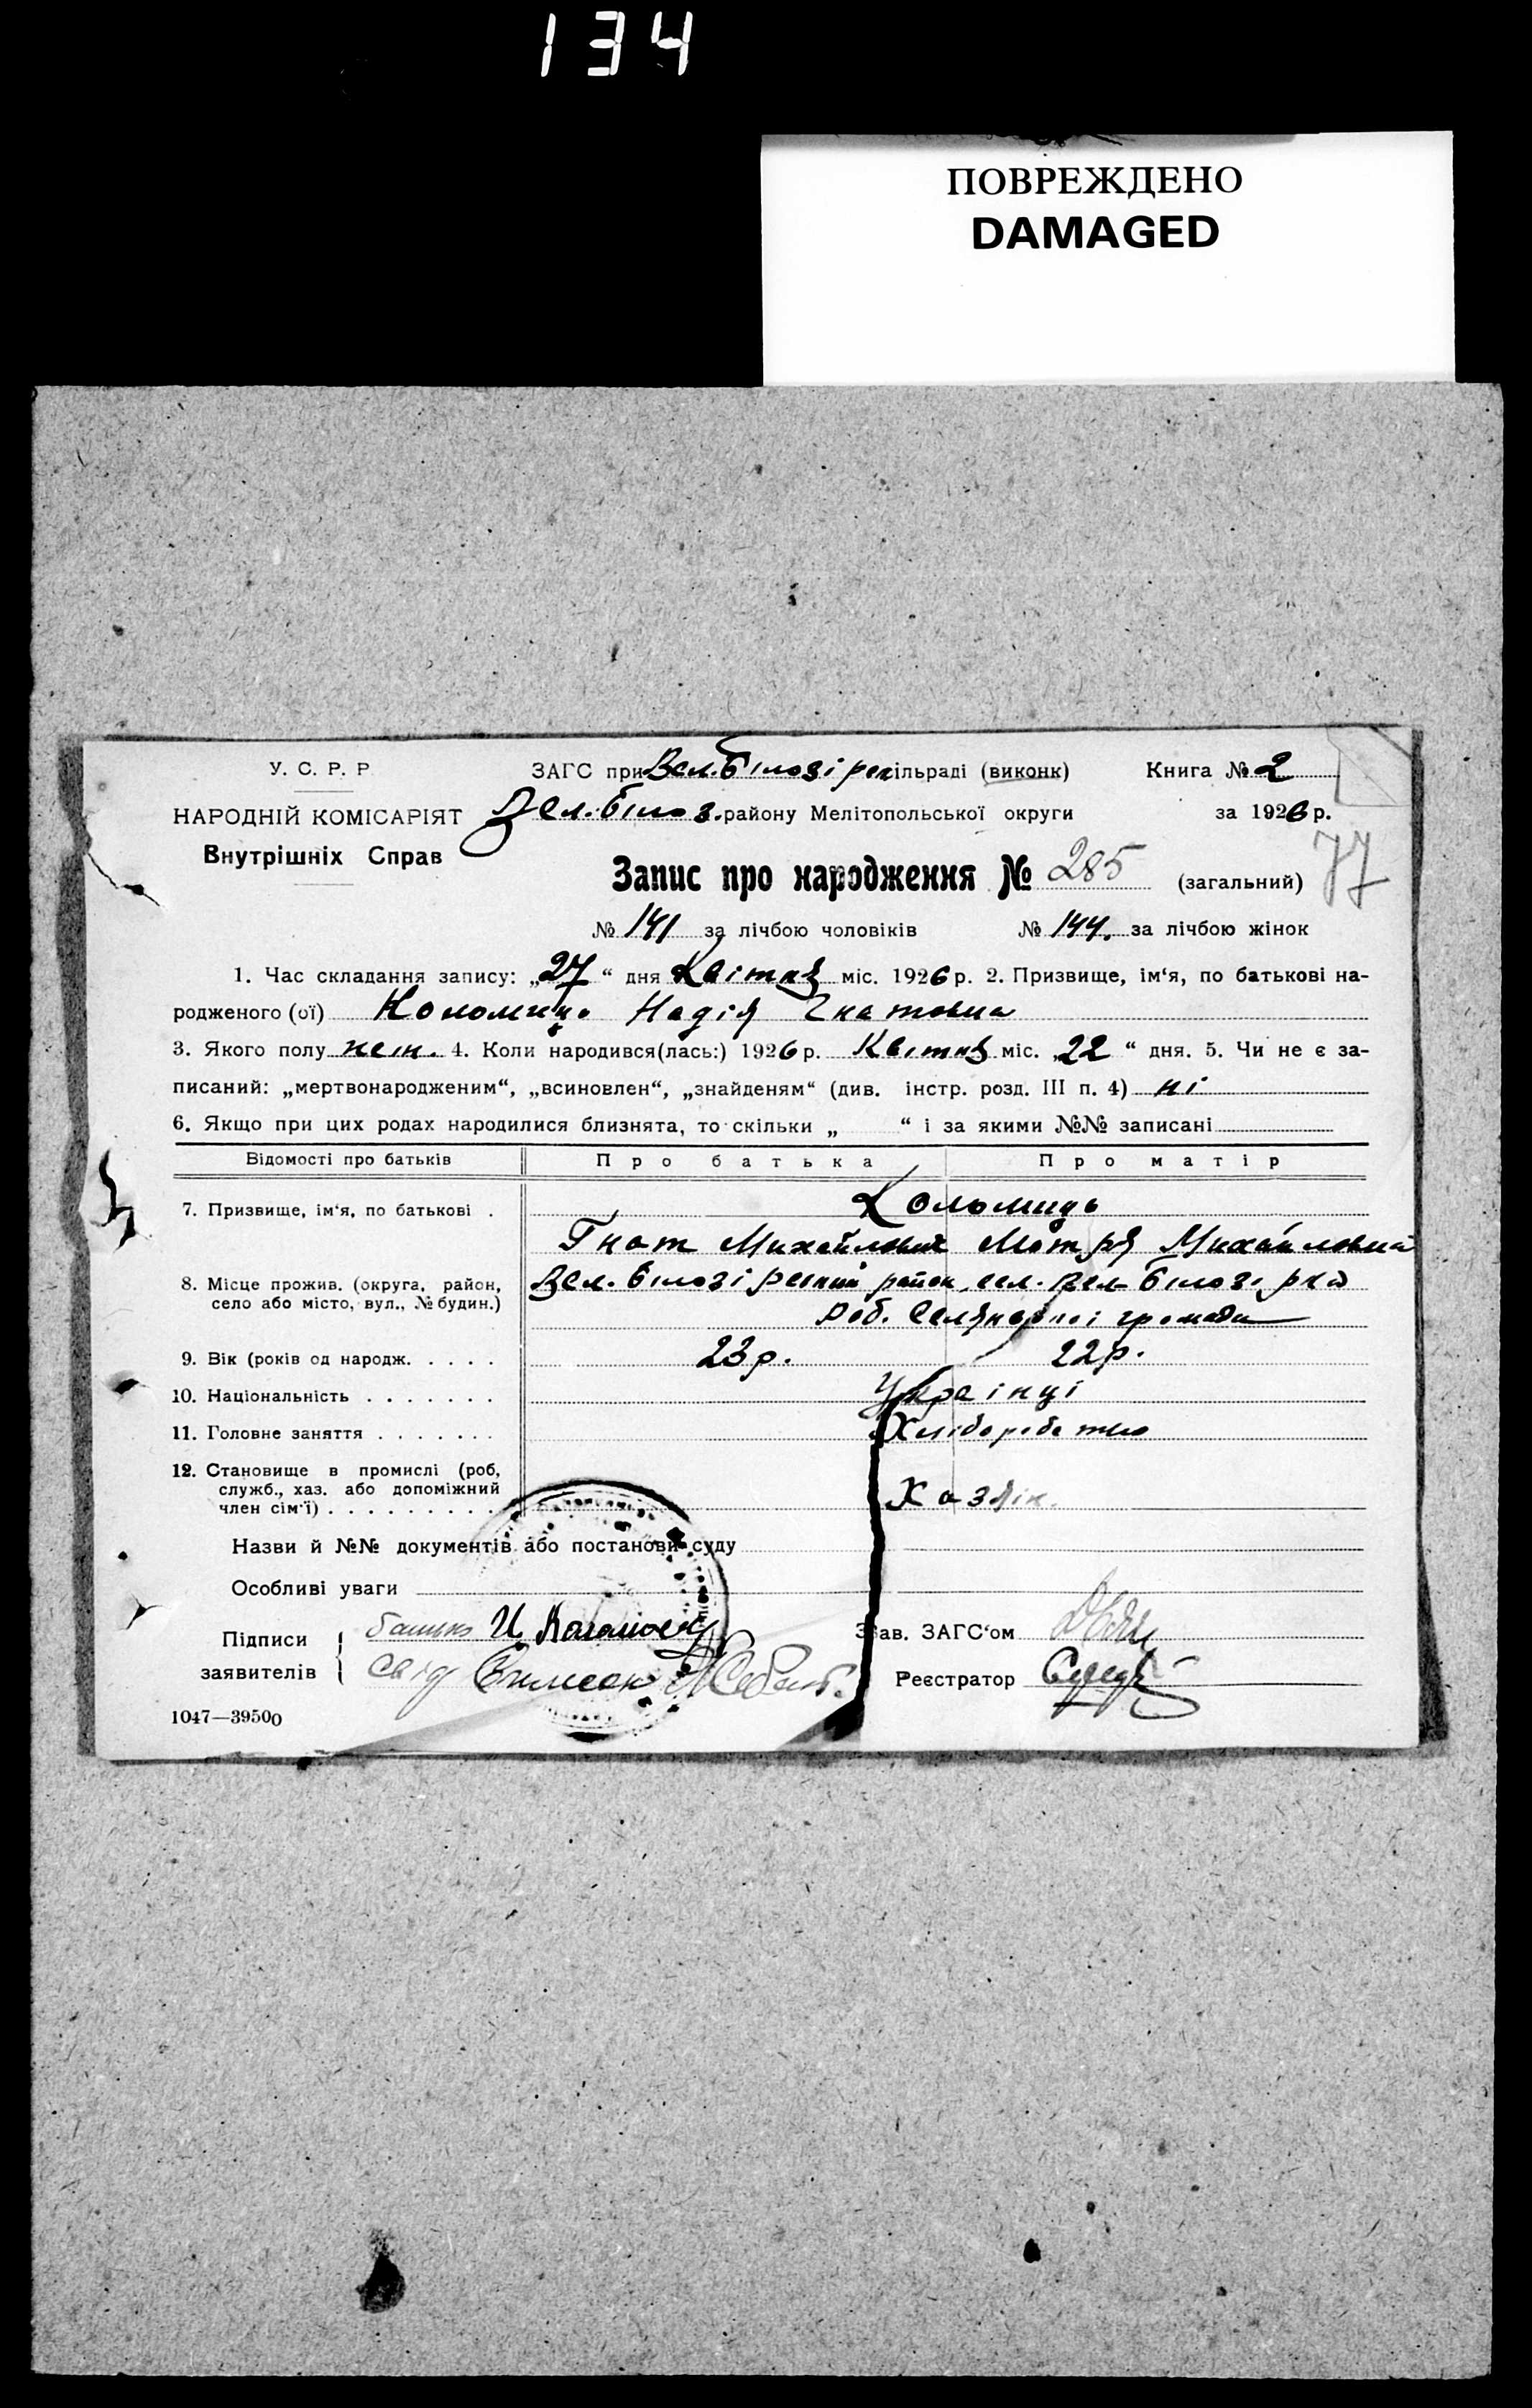 134
ПОВРЕЖДЕНО
DAMAGED
У. С. Р. Р ЗАГС при Вел. Білозірс кільраді (виконк) Книга № 2
НАРОДНІЙ КОМІСАРІЯТ Вел. Білоз. району Мелітопольської округи за 1926 р.
Внутрішніх Справ
Запис про народження № 285 (загальний) 77
№ 141 за лічбою чоловіків № 144. за лічбою жінок
1. Час складання запису: „27“ дня Квітня міс. 1926 р. 2. Призвище, ім‘я, по батькові на-
родженого (ої) Коломиць Надія Гнатовна
3. Якого полу жін. 4. Коли народився(лась:) 1926 р. Квітня міс. „22“ дня. 5. Чи не є за-
писаний: „мертвонародженим“, „всиновлен“, „знайденям“ (див. інстр. розд. III п. 4) ні
6. Якщо при цих родах народилися близнята, то скільки „ “ і за якими №№ записані
Відомості про батьків Про батька Про матір
7. Призвище, ім‘я, по батькові . Коломиць
Гнат Михайлович Мотря Михайловна
8. Місце прожив. (округа, район, Вел. Білозірський район, сел. Вел Білозірка
село або місто, вул., № будин.)
роб. Селянської громади
9. Вік (років од народж. . . . . 23 р. 22 р.
10. Національність . . . . . . . Українці
11. Головне заняття . . . . . . . Хліборобство
12. Становище в промислі (роб,
служб., хаз. або допоміжний
член сім‘ї) . . . . . . . . . Хазяїн.
Назви й №№ документів або постанови суду
Особливі уваги
Підписи батько И Зав. ЗАГС‘ом
заявителів свід Реєстратор
1047—39500